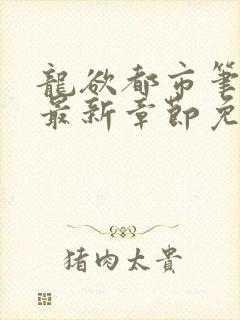 龍欲都市筆
最新章節免
猪肉太貴